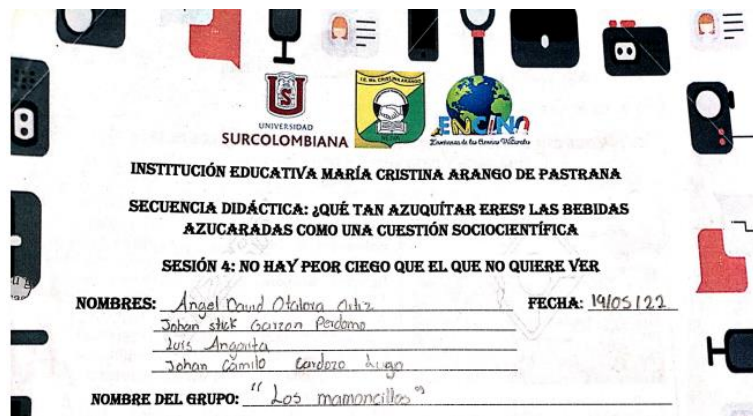 UNIVERSIDAD
SURCOLOMBIANA
I.E. Ma. CRISTINA ARANGO
NEIVA
ENCINA
Enseñanza de las Ciencias Naturales
INSTITUCIÓN EDUCATIVA MARÍA CRISTINA ARANGO DE PASTRANA
SECUENCIA DIDÁCTICA: ¿QUÉ TAN AZUQUÍTAR ERES? LAS BEBIDAS
AZUCARADAS COMO UNA CUESTIÓN SOCIOCIENTÍFICA
SESIÓN 4: NO HAY PEOR CIEGO QUE EL QUE NO QUIERE VER
NOMBRES: Angel David Otalora Ortiz FECHA: 19/05/22
Johan stick Garzon Perdomo
Luis Angarita
Johan Camilo Cardozo Lugo
NOMBRE DEL GRUPO: "Los mamoncillos"